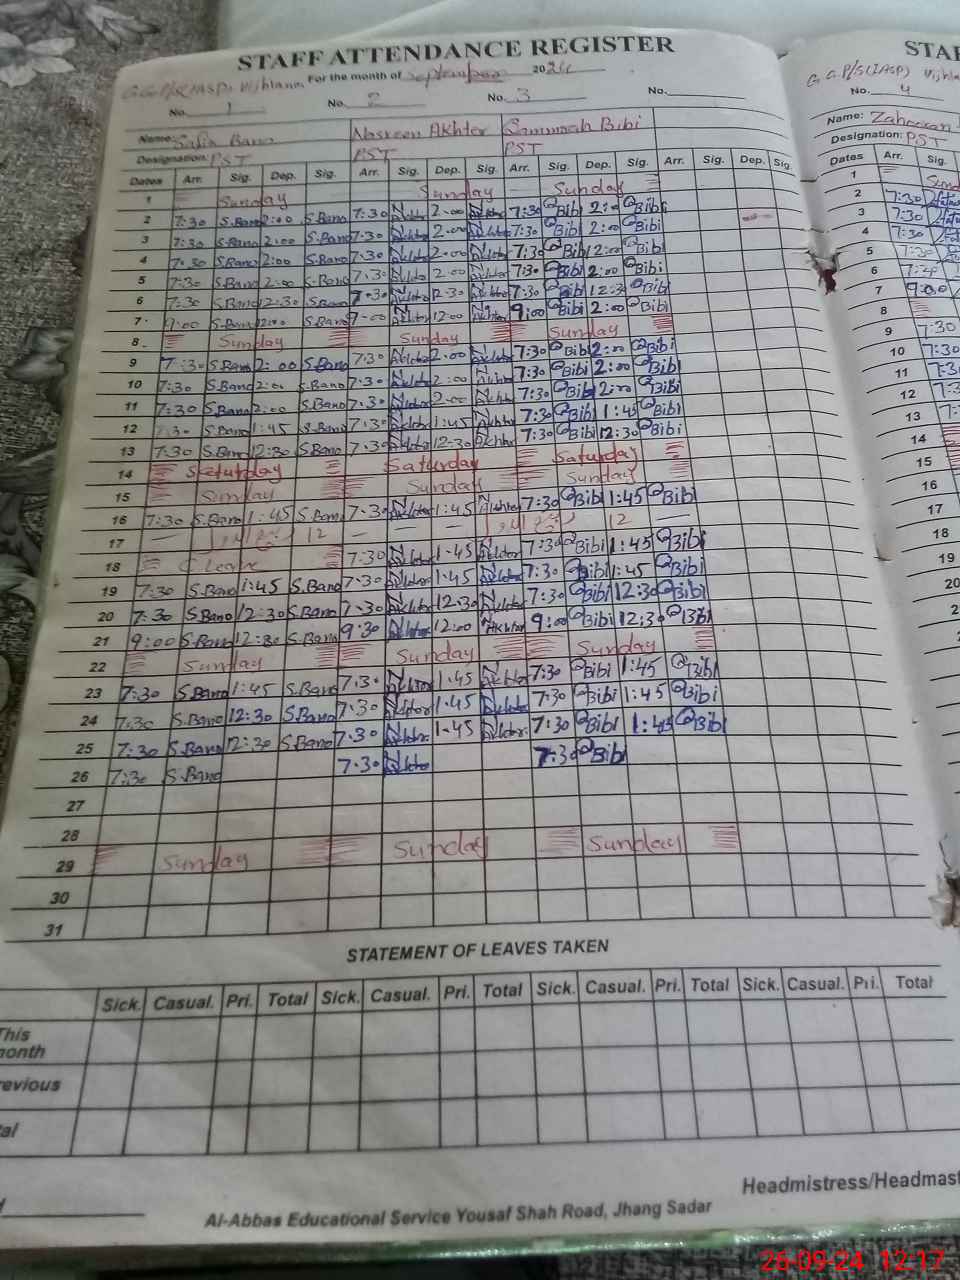 STAFF ATTENDANCE REGISTER
For the month of September 2024
No. 1 No. 2 No. 3 No.
Name: Safia Bano Nasreen Akhter Bibi
Designation: PST PST PST
Dates Arr. Sig. Dep. Sig. Arr. Sig. Dep. Sig. Arr. Sig. Dep. Sig. Arr. Sig. Dep. Sig.
1 Sunday Sunday Sunday
2 7:30 S.Bano 2:00 S.Bano 7:30 N Akhter 2:00 N Akhter 7:30 Bibi 2:00 Bibi
3 7:30 S.Bano 2:00 S.Bano 7:30 N Akhter 2:00 N Akhter 7:30 Bibi 2:00 Bibi
4 7:30 S.Bano 2:00 S.Bano 7:30 N Akhter 2:00 N Akhter 7:30 Bibi 2:00 Bibi
5 7:30 S.Bano 2:00 S.Bano 7:30 N Akhter 2:00 N Akhter 7:30 Bibi 2:00 Bibi
6 7:30 S.Bano 12:30 S.Bano 7:30 N Akhter 12:30 N Akhter 7:30 Bibi 12:30 Bibi
7 9:00 S.Bano 9:00 N Akhter 12:00 N Akhter 9:00 Bibi 2:00 Bibi
8 Sunday Sunday Sunday
9 7:30 S.Bano 2:00 S.Bano 7:30 N Akhter 2:00 N Akhter 7:30 Bibi 2:00 Bibi
10 7:30 S.Bano 2:00 S.Bano 7:30 N Akhter 2:00 N Akhter 7:30 Bibi 2:00 Bibi
11 7:30 S.Bano 2:00 S.Bano 7:30 N Akhter 2:00 N Akhter 7:30 Bibi 2:00 Bibi
12 7:30 S.Bano 1:45 S.Bano 7:30 N Akhter 1:45 N Akhter 7:30 Bibi 1:45 Bibi
13 7:30 S.Bano 12:30 S.Bano 7:30 N Akhter 12:30 N Akhter 7:30 Bibi 12:30 Bibi
14 Saturday Saturday Saturday
15 Sunday Sunday Sunday
16 7:30 S.Bano 1:45 S.Bano 7:30 N Akhter 1:45 N Akhter 7:30 Bibi 1:45 Bibi
17 12 12
18 C Leave 7:30 N Akhter 1:45 N Akhter 7:30 Bibi 1:45 Bibi
19 7:30 S.Bano 1:45 S.Bano 7:30 N Akhter 1:45 N Akhter 7:30 Bibi 1:45 Bibi
20 7:30 S.Bano 12:30 S.Bano 7:30 N Akhter 12:30 N Akhter 7:30 Bibi 12:30 Bibi
21 9:00 S.Bano 12:30 S.Bano 9:30 N Akhter 12:00 N Akhter 9:00 Bibi 12:30 Bibi
22 Sunday Sunday Sunday
23 7:30 S.Bano 1:45 S.Bano 7:30 N Akhter 1:45 N Akhter 7:30 Bibi 1:45 Bibi
24 7:30 S.Bano 12:30 S.Bano 7:30 N Akhter 1:45 N Akhter 7:30 Bibi 1:45 Bibi
25 7:30 S.Bano 12:30 S.Bano 7:30 N Akhter 1:45 N Akhter 7:30 Bibi 1:45 Bibi
26 7:30 S.Bano 7:30 N Akhter 7:30 Bibi
27
28
29 Sunday Sunday Sunday
30
31
STATEMENT OF LEAVES TAKEN
Sick. Casual. Pri. Total Sick. Casual. Pri. Total Sick. Casual. Pri. Total Sick. Casual. Pri. Total
This
month
Previous
Headmistress/Headmast
Al-Abbas Educational Service Yousaf Shah Road, Jhang Sadar
No. 4
Name:
Designation: PST
Dates Arr. Sig.
1
2 7:30
3 7:30
4 7:30
5 7:30
6
7 9:00
8
9 7:30
10 7:30
11
12
13
14
15
16
17
18
19
20
26-09-24 12:17